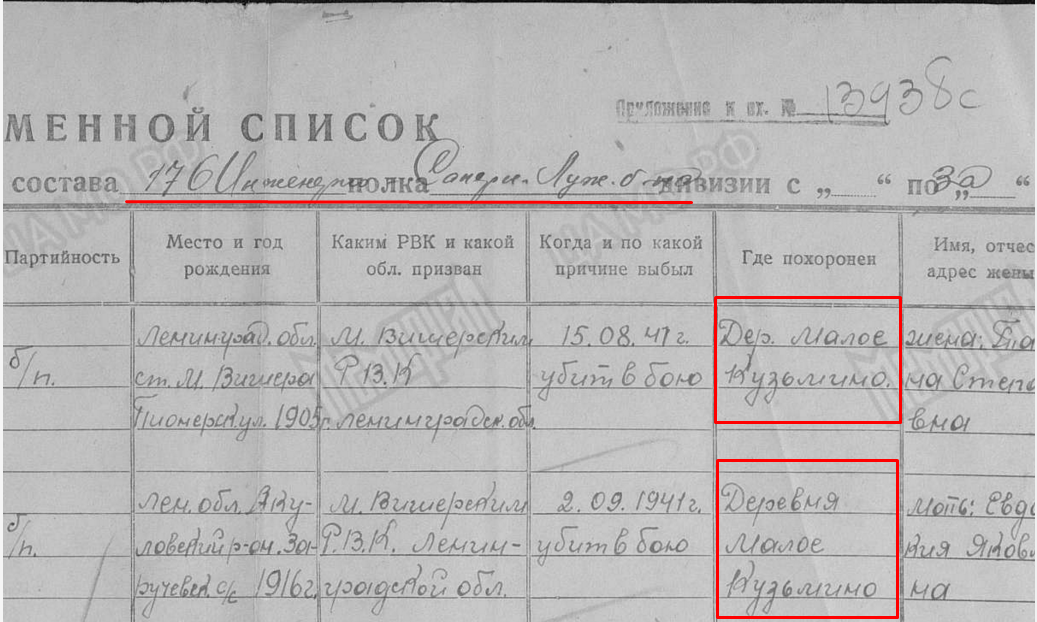 Приложение к вх. № 13938с
МЕННОЙ СПИСОК
состава 176 Инженерн полка Саперн. Луж. б-на дивизии с „ “ по „ “ за
Партийность
Место и год
рождения
Каким РВК и какой
обл. призван
Когда и по какой
причине выбыл
Где похоронен
Имя, отчес
адрес жены
б/п.
Ленинград. обл.
ст. М. Вишера
Пионерск ул. 1905г.
М. Вишерским
Р.В.К
Ленинградск. обл.
15.08.41г.
убит в бою
Дер. Малое
Кузьмино.
жена: Та
на Степа
вна
б/п.
Лен. обл. Аку-
ловский р-он. За-
ручевск. с/с 1916г.
М. Вишерским
Р.В.К. Ленин-
градской обл.
2.09.1941г.
убит в бою
Деревня
Малое
Кузьмино
мать: Евдо
кия Яковл
на
ЦАМО РФ
ЦАМО РФ
ЦАМО РФ